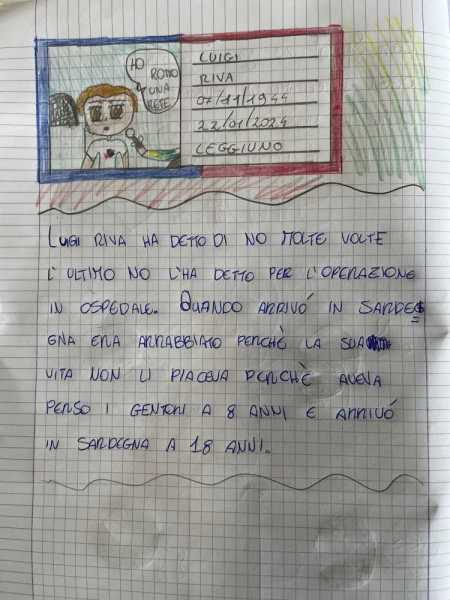 HO
ROTTO
UNA
RETE
LUIGI
RIVA
07/11/1944
22/01/2024
LEGGIUNO
LUIGI RIVA HA DETTO DI NO MOLTE VOLTE
L'ULTIMO NO L'HA DETTO PER L'OPERAZIONE
IN OSPEDALE. QUANDO ARRIVÓ IN SARDE=
GNA ERA ARRABBIATO PERCHÈ LA SUA
VITA NON LI PIACEVA PERCHÈ AVEVA
PERSO I GENITORI A 8 ANNI E ARRIVÓ
IN SARDEGNA A 18 ANNI.